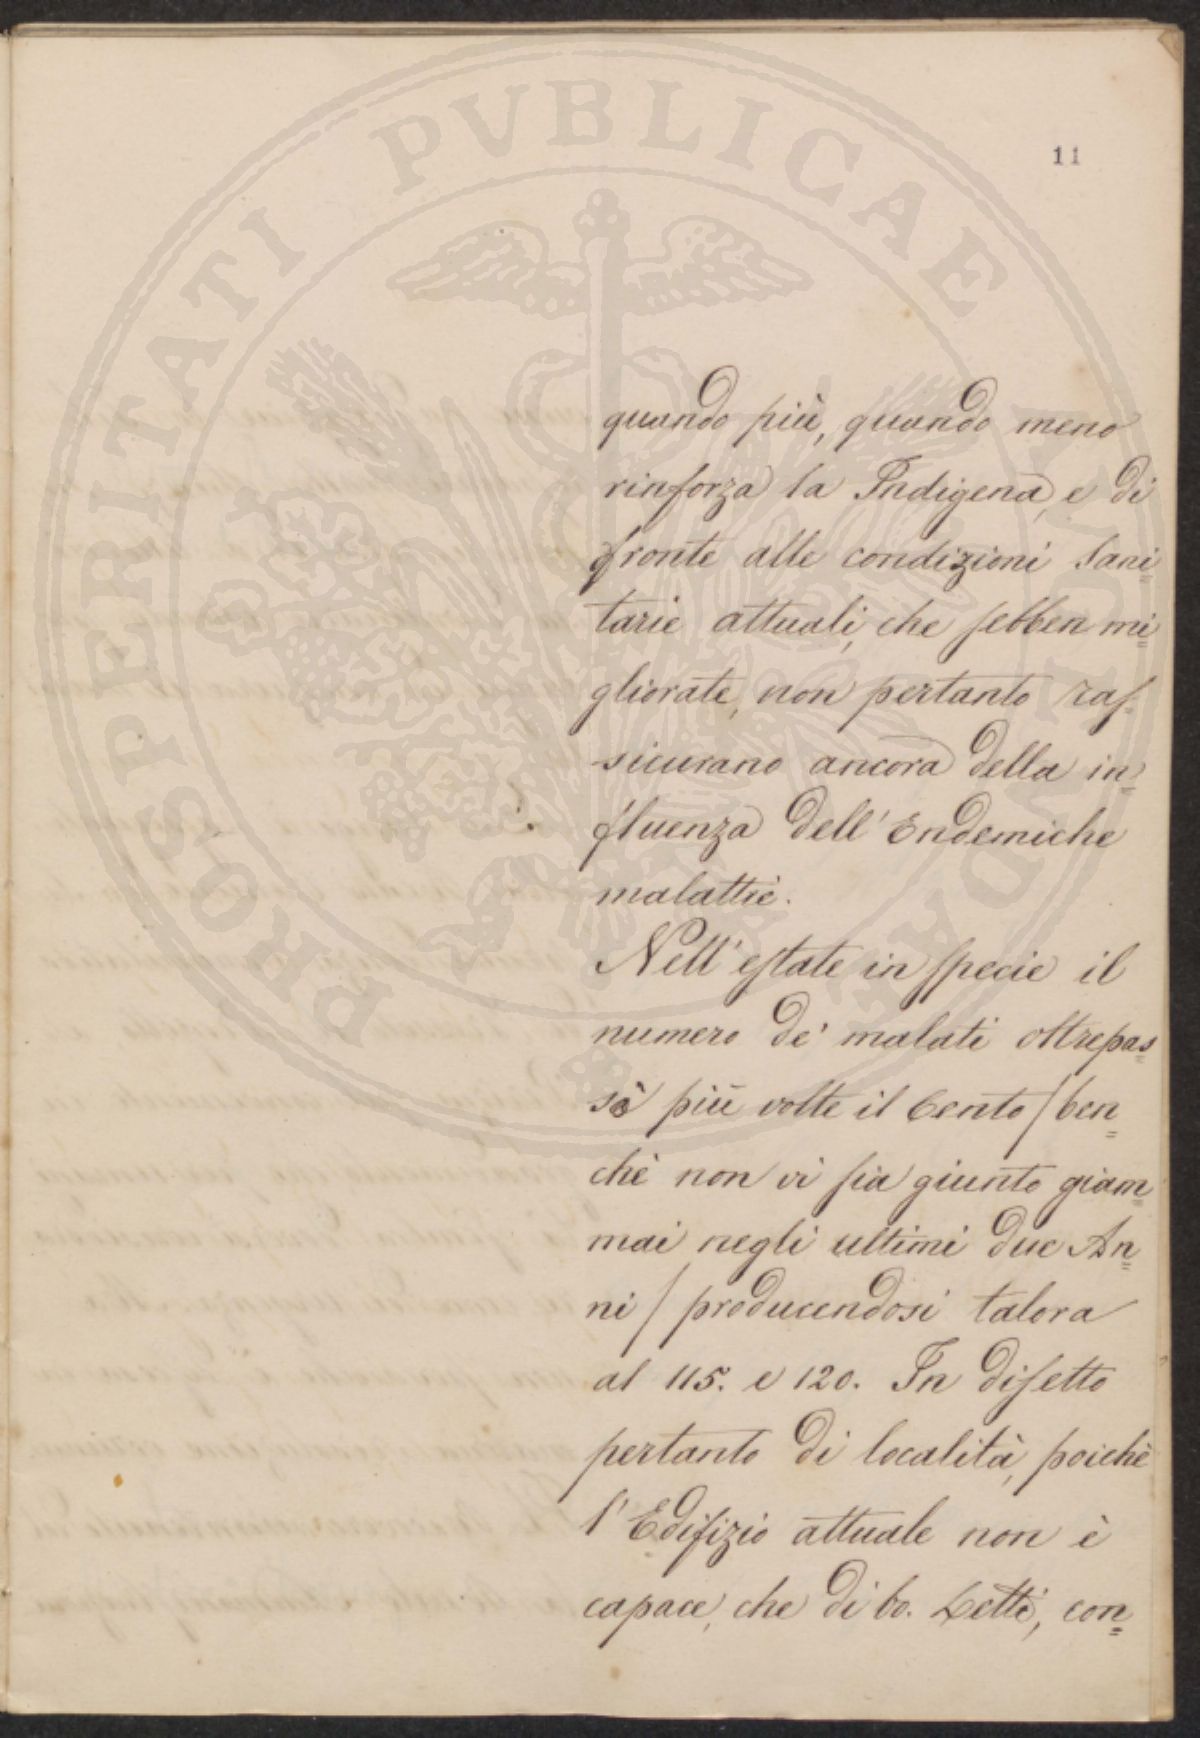 11
PROSPERITATI PUBLICAE AUGENDAE
quando più, quando meno
rinforza la Indigena, e di
fronte alle condizioni Sani=
tarie attuali, che sebben mi=
gliorate, non pertanto ras=
sicurano ancora della in=
fluenza dell'Endemiche
malattie.
Nell'estate in specie il
numero de' malati oltrepas=
sò più volte il Cento / ben=
chè non vi sia giunto giam=
mai negli ultimi due An=
ni / producendosi talora
al 115. e 120. In difetto
pertanto di località, poichè
l'Edifizio attuale non è
capace, che di 60. Letti, con=